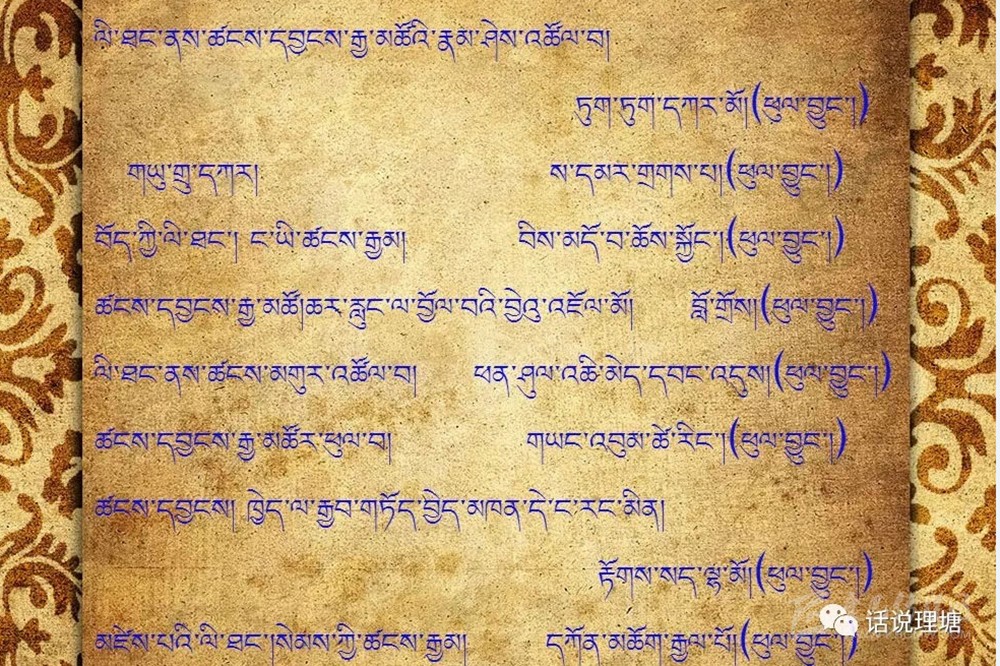 ལི་ཐང་ནས་ཚངས་དབྱངས་རྒྱ་མཚོའི་རྣམ་ཤེས་འཚོལ་བ།
ཏུག་ཏུག་དཀར་མོ།(ཕུལ་བྱུང་།)
གཡུ་གྲུ་དཀར། ས་དམར་གྲགས་པ།(ཕུལ་བྱུང་།)
བོད་ཀྱི་ལི་ཐང་། ང་ཡི་ཚངས་རྒྱམ། བིས་མདོ་བ་ཆོས་སྐྱོང་།(ཕུལ་བྱུང་།)
ཚངས་དབྱངས་རྒྱ་མཚོ།ཆར་རླུང་ལ་བྱོལ་བའི་བྱེའུ་འཇོལ་མོ། བློ་གྲོས།(ཕུལ་བྱུང་།)
ལི་ཐང་ནས་ཚངས་མགུར་འཚོལ་བ། ཕན་ཤུལ་འཆི་མེད་དབང་འདུས།(ཕུལ་བྱུང་།)
ཚངས་དབྱངས་རྒྱ་མཚོར་ཕུལ་བ། གཡང་འབུམ་ཚེ་རིང་།(ཕུལ་བྱུང་།)
ཚངས་དབྱངས། ཁྱེད་ལ་རྒྱབ་གཏོད་བྱེད་མཁན་དེ་ང་རང་མིན།
རྟོགས་སད་ལྷ་མོ།(ཕུལ་བྱུང་།)
མཛེས་པའི་ལི་ཐང་།སེམས་ཀྱི་ཚངས་རྒྱམ། དཀོན་མཆོག་རྒྱལ་པོ།(ཕུལ་བྱུང་།)
话说理塘